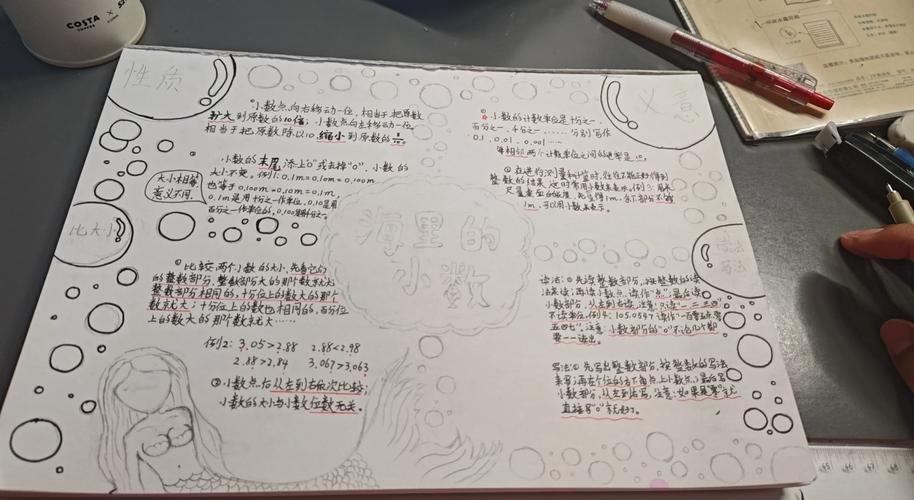 COSTA
COFFEE
×
性质
小数点向右移动一位，相当于把原数
扩大到原数的10倍；小数点向左移动一位，
相当于把原数除以10，缩小到原数的1/10。
小数的末尾添上"0"或去掉"0"，小数的
大小不变。例1：0.1m=0.10m=0.100m
也等于0.100m=0.10m=0.1m
0.1m是用十分之一作单位，0.10是用
百分之一作单位的，
大小相等
意义不同.
比大小
①比较两个小数的大小，先看它们
的整数部分，整数部分大的那个数就大；
整数部分相同的，十分位上的数大的那个
数就大；十分位上的数也相同的，百分位
上的数大的那个数就大……
例2：3.05>2.88 2.88<2.98
2.88>2.84 3.067>3.063
②小数点后从左到右依次比较；
小数的大小与小数位数无关。
海里的
小数
意义
小数的计数单位是十分之一、
百分之一、千分之一……分别写作
0.1、0.01、0.001……
每相邻两个计数单位之间的进率是10。
②在进行测量和计算时，往往不能正好得到
整数的结果，这时常用小数来表示。例3：用米
1m，可以用小数来表示。
读法
写法
读法：①先读整数部分，按整数的读
法来读；再读小数点，读作"点"；最后读
小数部分，从左到右，注意：只读"一、二、三、四"
不读单位。例4：105.0547读作一百零五点零
五四七。注意：小数部分的"0"不论几个都
要一一读出。
写法：①先写出整数部分，按整数的写法
来写；再在个位的右下角点上小数点；最后写
小数部分，从左到右写，注意：如果是"零"就
直接写"0"就好了。